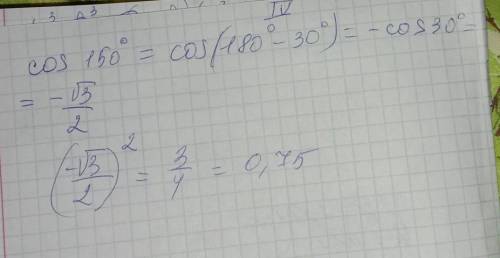 IV
cos 150° = cos(-180° - 30°) = - cos 30° =
= -√3/2
(-√3/2)² = 3/4 = 0,75